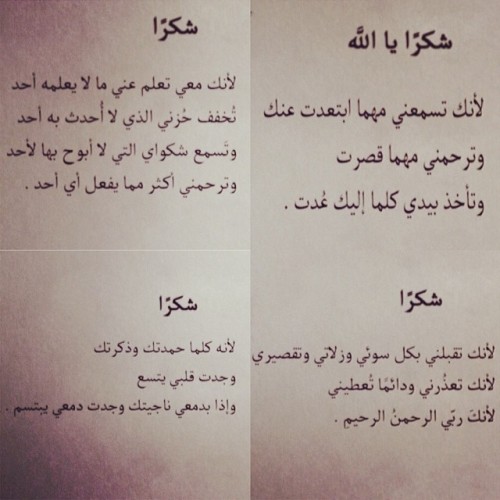 شكرًا يا الله
لأنك تسمعني مهما ابتعدت عنك
وترحمني مهما قصرت
وتأخذ بيدي كلما إليك عُدت .
شكرًا
لأنك معي تعلم عني ما لا يعلمه أحد
تُخفف حُزني الذي لا أُحدث به أحد
وتَسمع شكواي التي لا أبوح بها لأحد
وترحمني أكثر مما يفعل أي أحد .
شكرًا
لأنك تقبلني بكل سوئي وزلاتي وتقصيري
لأنك تعذُرني ودائمًا تُعطيني
لأنكَ ربّي الرحمنُ الرحيم .
شكرًا
لأنه كلما حمدتك وذكرتك
وجدت قلبي يتسع
وإذا بدمعي ناجيتك وجدت دمعي يبتسم .